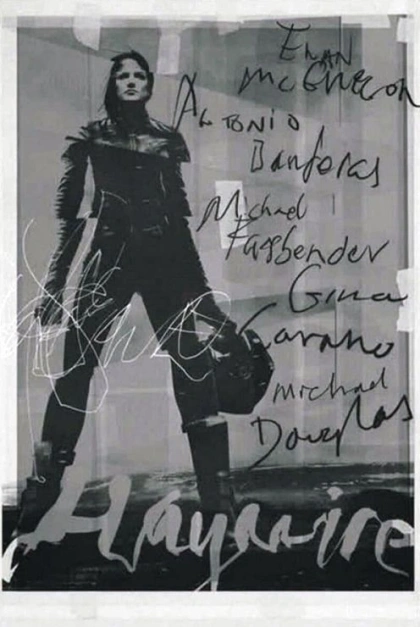 Ewan
McGregor
Antonio
Banderas
Michael
Fassbender
Gina
Carano
Michael
Douglas
Haywire